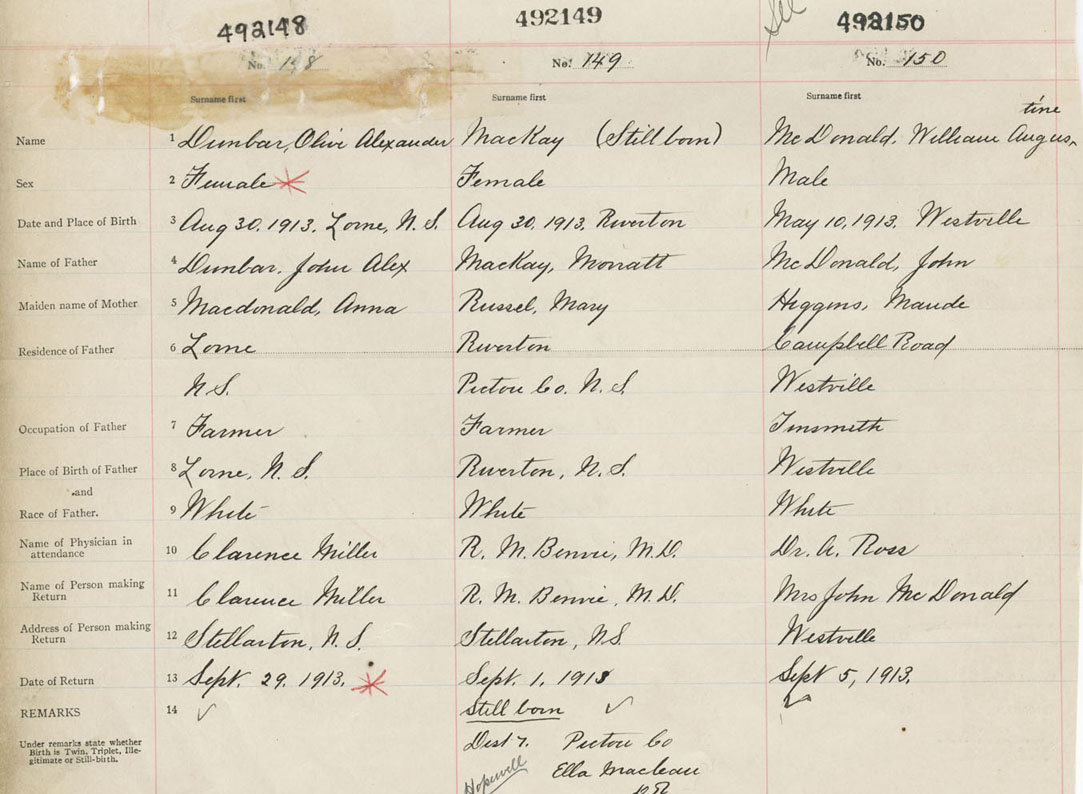 492148 492149 See 492150
No. 148 No. 149 No. 150
Surname first Surname first Surname first
tine
Name 1 Dunbar, Olive Alexander MacKay (Still born) McDonald, William Augus,
Sex 2 Female Female Male
Date and Place of Birth 3 Aug 30. 1913. Lorne, N.S. Aug 30. 1913. Riverton May 10, 1913. Westville
Name of Father 4 Dunbar, John Alex MacKay, McDonald, John
Maiden name of Mother 5 Macdonald, Anna Russel, Mary Higgins, Maude
Residence of Father 6 Lorne Riverton Campbell Road
N.S. Pictou Co. N.S. Westville
Occupation of Father 7 Farmer Farmer Tinsmith
Place of Birth of Father 8 Lorne, N.S. Riverton, N.S. Westville
and
Race of Father. 9 White White White
Name of Physician in
attendance 10 Clarence Miller R. M. Benvie, M.D. Dr. A. Ross
Name of Person making
Return 11 Clarence Miller R. M. Benvie, M.D. Mrs John McDonald
Address of Person making
Return 12 Stellarton, N.S. Stellarton, N.S. Westville
Date of Return 13 Sept. 29. 1913. Sept. 1, 1913 Sept 5, 1913.
REMARKS 14 ✓ Still born ✓ ✓
Under remarks state whether
Birth is Twin, Triplet, Ille-
gitimate or Still-birth.
Dist 7. Pictou Co
Hopewell Ella Maclean